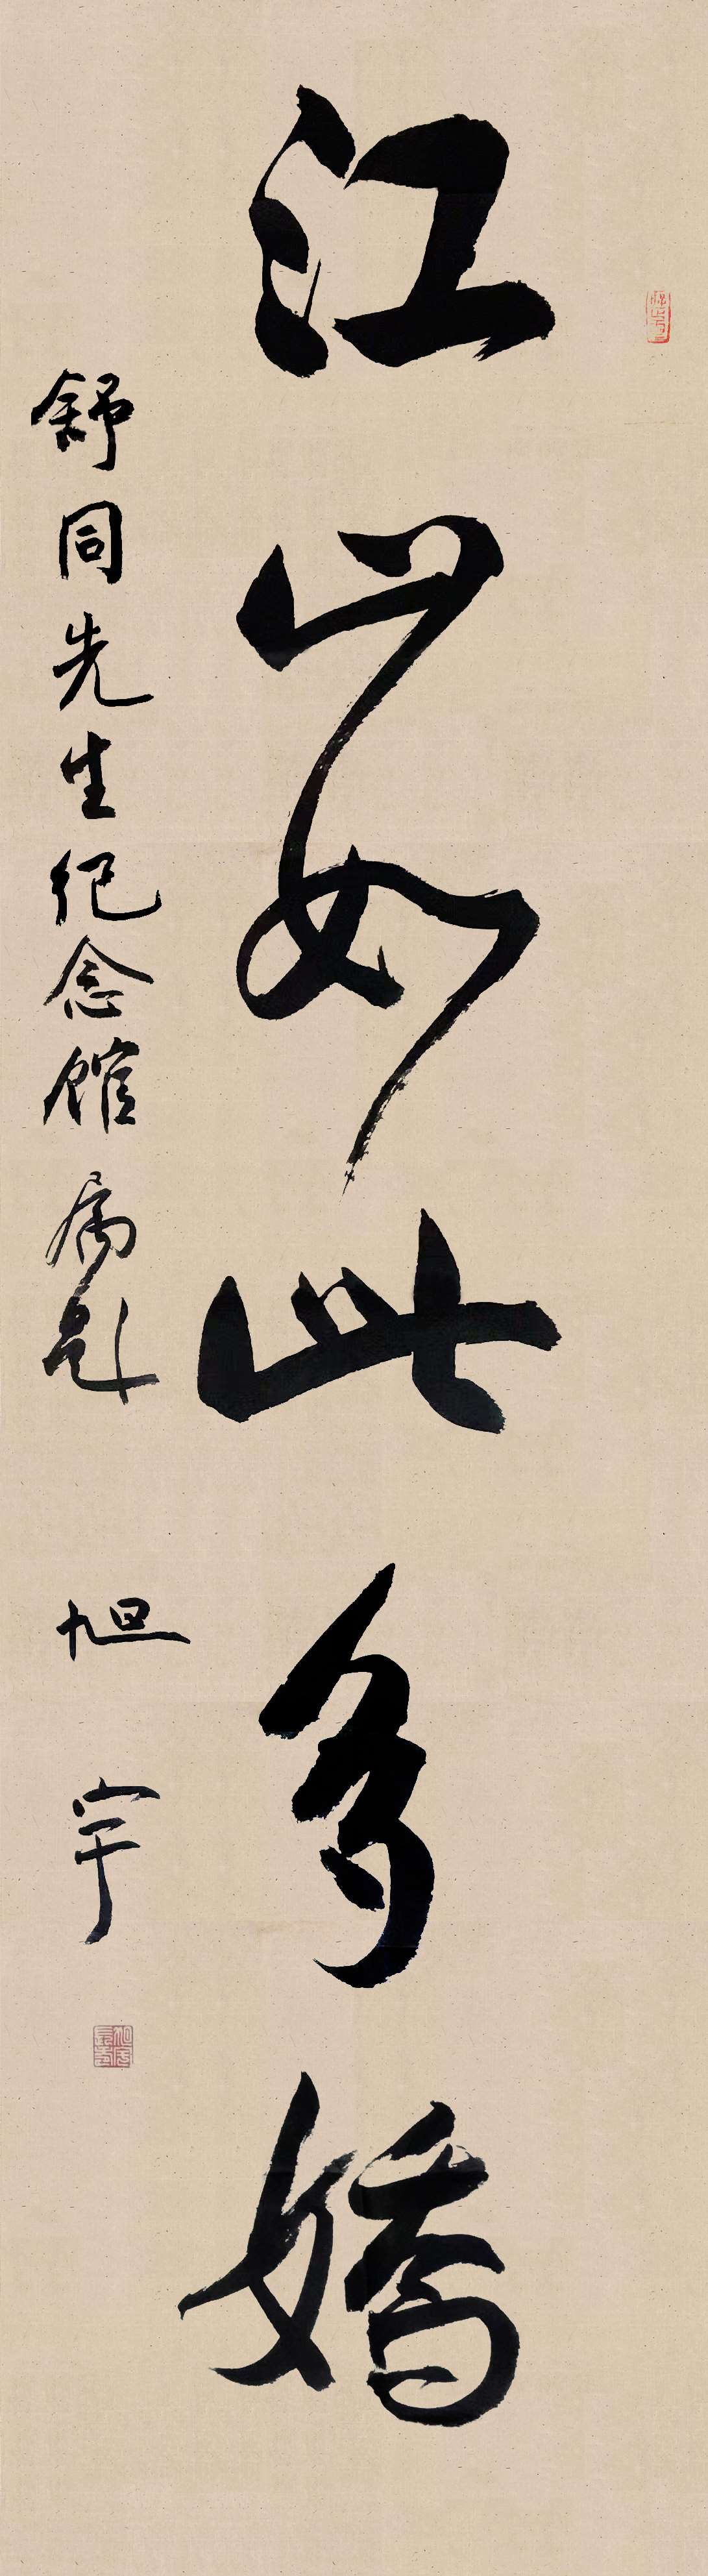 江山如此多娇
舒同先生纪念馆属题
旭宇